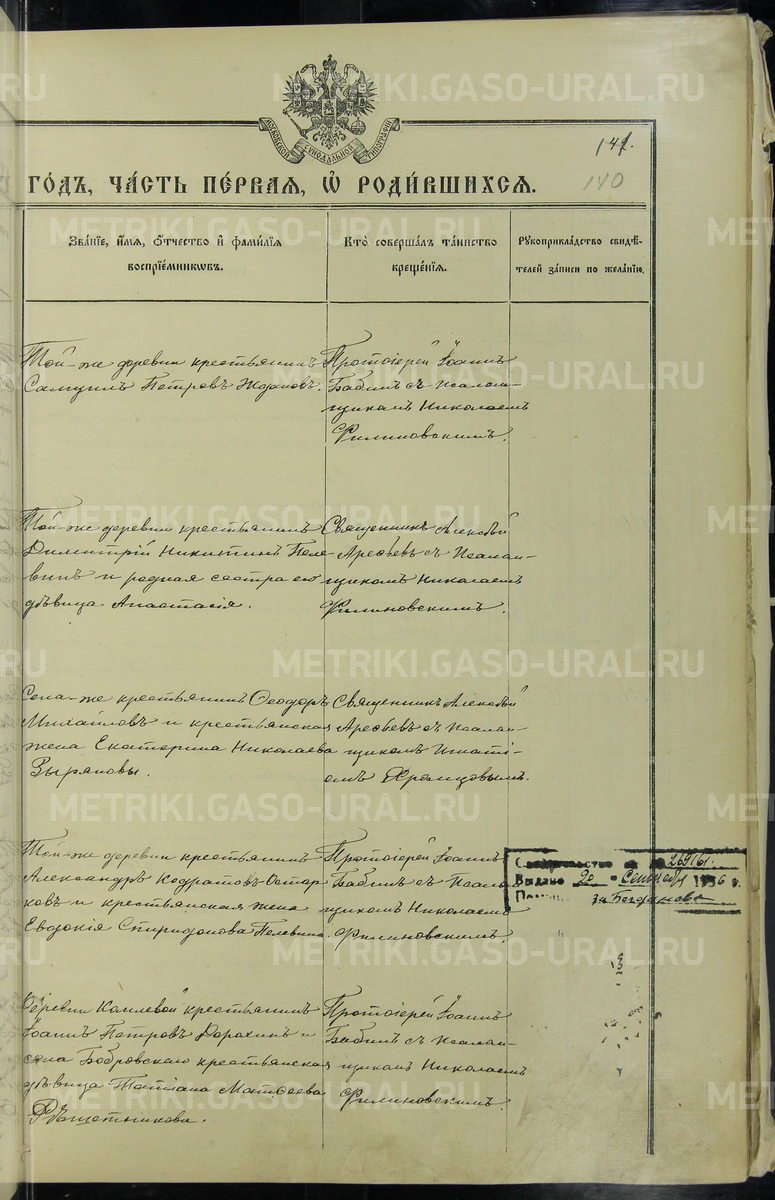 METRIKI.GASO-URAL.RU
МОСКОВСКОЙ СѴНОДАЛЬНОЙ ТИПОГРАФІИ
141.
140
ГО́ДЪ, ЧА́СТЬ ПЕ́РВАЯ, Ѽ РОДИ́ВШИХСѦ.
Зва́нїе, и҆́мѧ, ѻ҆́тчество и҆ фами́лїѧ
воспрїе́мникѡвъ.
Кто̀ соверша́лъ та́инство
креще́нїѧ.
Рꙋкоприкла́дство свидѣ́-
телей за́писи по жела́нїю.
Той-же деревни крестьянинъ
Самуилъ Петровъ Ждановъ.
Протоіерей Іоаннъ
Бабинъ съ псалом-
щикомъ Николаемъ
Филиновскимъ.
Той-же деревни крестьянинъ
Димитрій Никитинъ Пеле-
винъ и родная сестра его
дѣвица Анастасія.
Священникъ Алексѣй
Арефьевъ съ псалом-
щикомъ Николаемъ
Филиновскимъ.
Села-же крестьянинъ Ѳеодоръ
Михайловъ и крестьянская
жена Екатерина Николаева
Зыряновы.
Священникъ Алексѣй
Арефьевъ съ псалом-
щикомъ Игнаті-
емъ
Той-же деревни крестьянинъ
Александръ Кодратовъ Остар-
ковъ и крестьянская жена
Евдокія Спиридонова Пелевина.
Протоіерей Іоаннъ
Бабинъ съ псалом-
щикомъ Николаемъ
Филиновскимъ.
Свидетельство за №
Выдано 20 Сентября 1936 г.
Деревни Камлевой крестьянинъ
Іоаннъ Петровъ Дорохинъ и
села Бобровскаго крестьянская
дѣвица Татіана Матѳеева
Рѣшетникова.
Протоіерей Іоаннъ
Бабинъ съ псалом-
щикомъ Николаемъ
Филиновскимъ.